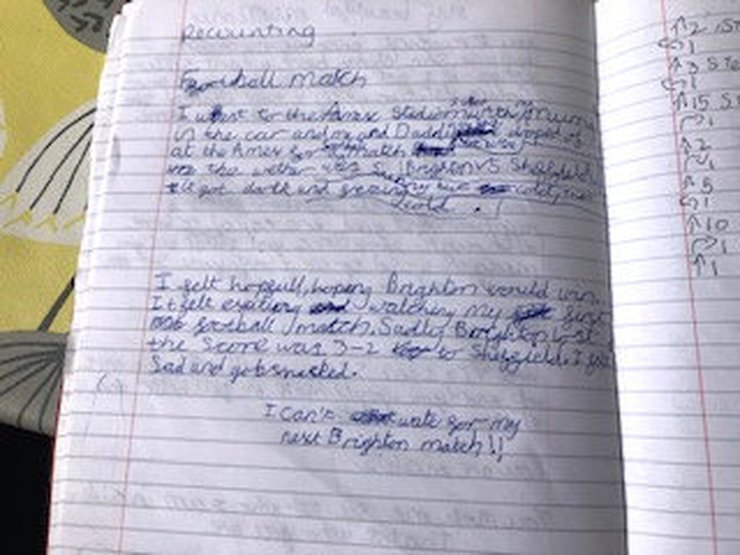 Recounting
Football match
I went to the Amex Stadium with mum
in the car and and Daddy droped of
at the Amex for match
the wether Brighton vs Sheffield
It got dark and
cold.
I felt hopfull, hoping Brighton would win.
It felt exiting watching my first
football match. Sadly Brighton lost
the score was 3-2 to Sheffield. I felt
Sad and gobsmicked.
I can't wate for my
next Brighton match!!
↑2
↰1
↑3
↰1
↑15
↱1
↑2
↰1
↑5
↰1
↑10
↱1
↑1